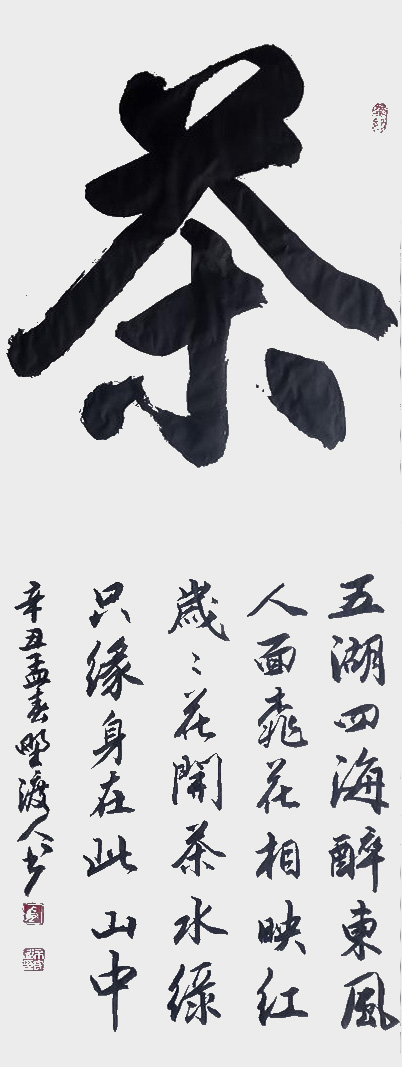 茶
五湖四海醉東風
人面桃花相映红
歲〻花開茶水綠
只缘身在此山中
辛丑孟春野渡人书